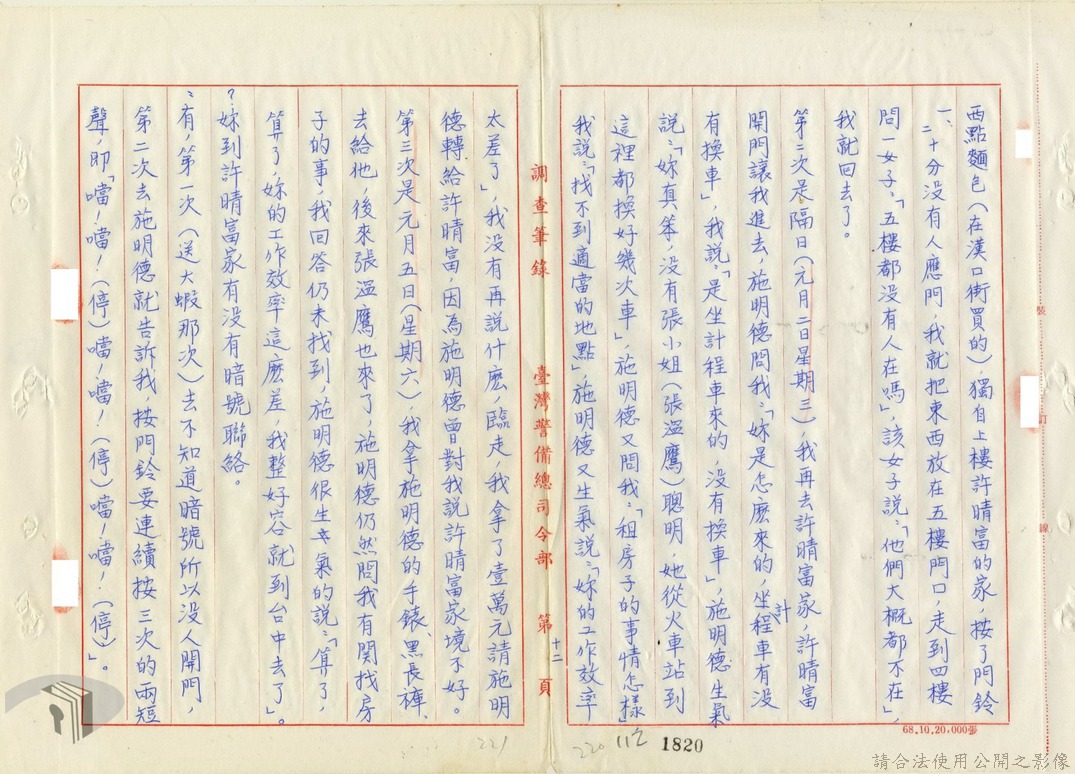 西點麵包(在漢口街買的),獨自上樓許晴富的家,按了門鈴
一、二十分没有人應門,我就把東西放在五樓門口,走到四樓
問一女子:「五樓都没有人在嗎」,該女子說:「他們大概都不在」,
我就回去了。
第二次是隔日(元月二日星期三),我再去許晴富家,許晴富
開門讓我進去,施明德問我:「妳是怎麽來的,坐計程車有没
有換車」,我說:「是坐計程車來的,没有換車」,施明德生氣
說:「妳真笨,没有張小姐(張溫鷹)聰明,她從火車站到
這裡都換好幾次車」,施明德又問我:「租房子的事情怎樣」
我說:「找不到適當的地點」,施明德又生氣說:「妳的工作效率
68.10.20,000張
裝
訂
線
1820
112
220
調查筆錄
臺灣警備總司令部
第十二頁
太差了」,我没有再說什麽,臨走,我拿了壹萬元請施明
德轉給許晴富,因為施明德曾對我說許晴富家境不好。
第三次是元月五日(星期六),我拿施明德的手錶、黑長褲、
去給他,後來張溫鷹也來了,施明德仍然問我有関找房
子的事,我回答仍未找到,施明德很生氣的說:「算了,
算了,妳的工作效率這麽差,我整好容就到台中去了」。
?妳到許晴富家有没有暗號聯絡。
:有,第一次(送大蝦那次)去不知道暗號所以没人開門,
第二次去施明德就告訴我,按門鈴要連續按三次的兩短
聲,即「噹!噹!(停)噹!噹!(停)噹!噹!(停)」。
221
請合法使用公開之影像